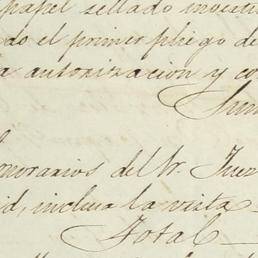 papel sellado
do el primer pliego de
a autorizacion y co
Sum
l
morarios del Sr. Juez
id, inclusa la vista
Total